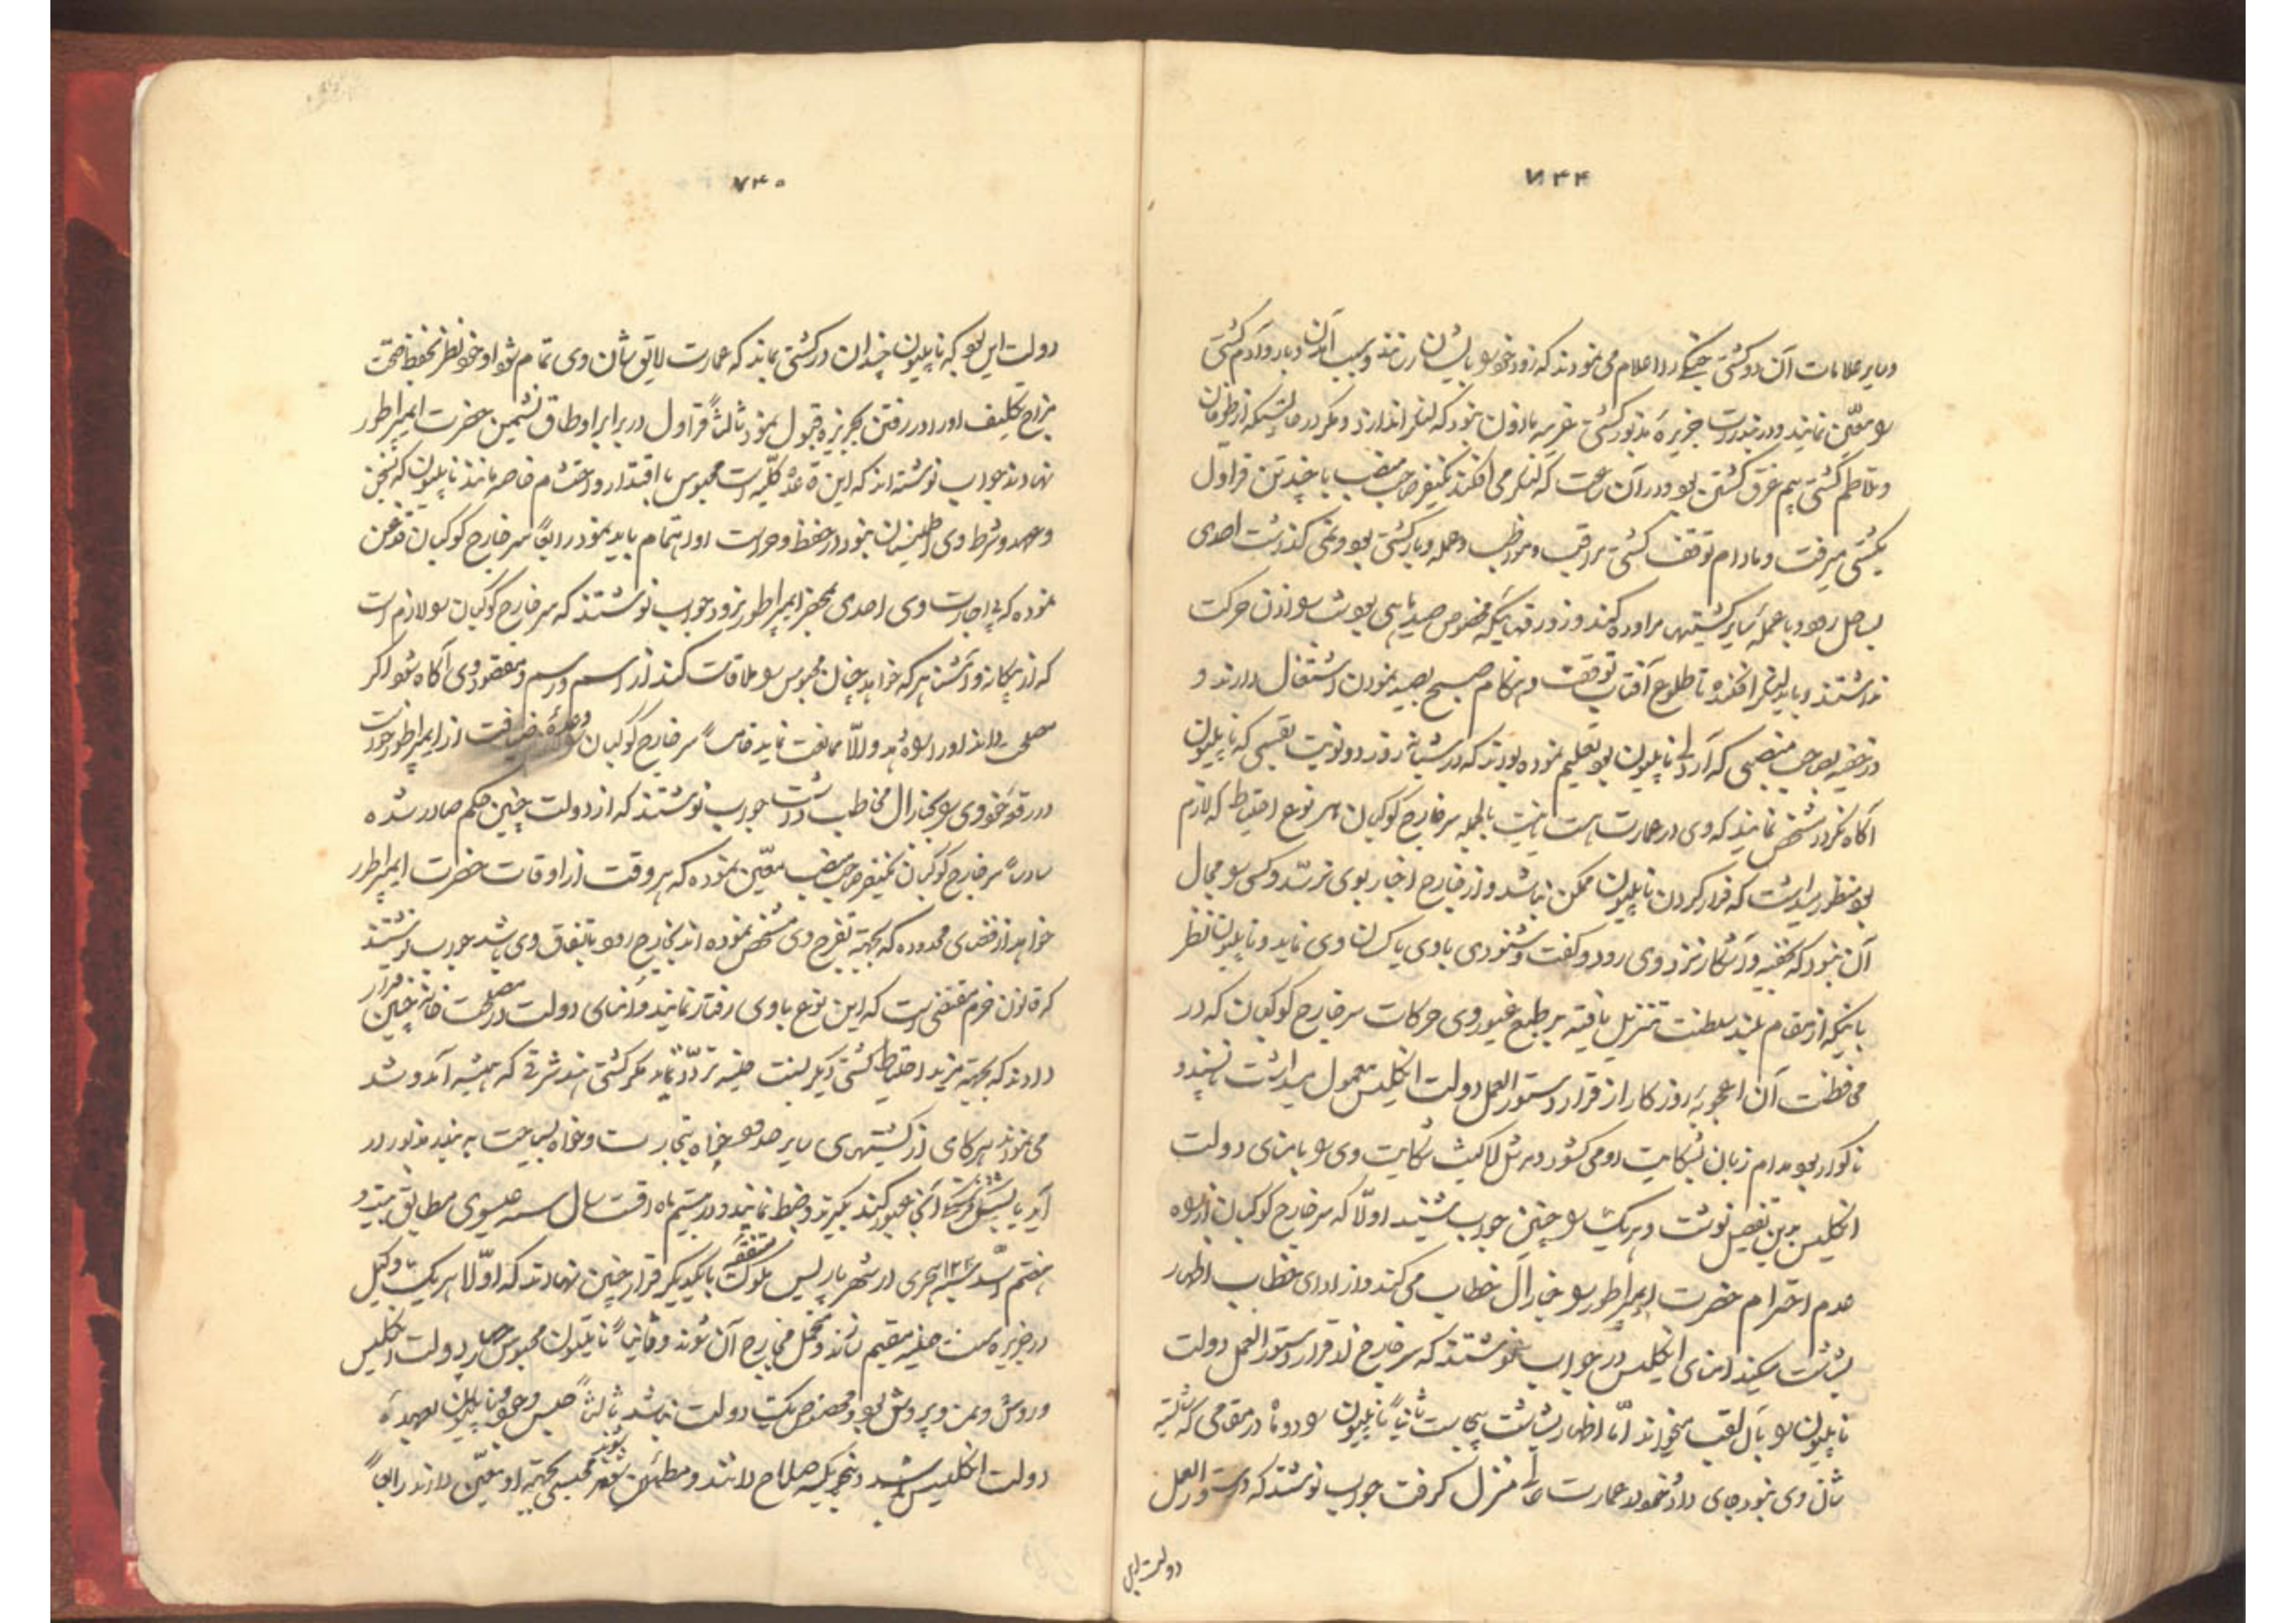 ۷۴۴
و سایر علامات آن دو کشتی جنگی را اعلام می نمودند که زود خود را بایشان رسانند و سبب آمدن و بار و آدم کشتی
را معین نمایند و در بندرات جزیره مذکور کشتی غریبه ماذون نبود که لنگر اندازد و مگر در حالتیکه از طوفان
و تلاطم کشتی بیم غرق گشتن بود و در آن ساعت که لنگر می افکند یکنفر صاحب منصب با چند تن قراول
بکشتی میرفت و مادام توقف کشتی مراقب و مواظب و عمله و بار کشتی بود و نمی گذاشت احدی
بساحل رود و یا عمله سایر کشتیها مراوده کند و زورقهائیکه مخصوص صید ماهی بود شب را اذن حرکت
نداشتند و باید لنگر افکنده تا طلوع آفتاب توقف و هنگام صبح بصید نمودن اشتغال دارند و
در خفیه بصاحب منصبی که آردلی ناپلیون بود تعلیم نموده بودند که در شبانه روز دو نوبت بقسمی که ناپلیون
آگاه نگردد مشخص نمایند که وی در عمارت است یا نیست بالجمله سر خارج کوکبان بهر نوع احتیاط که لازم
بود منظور میداشت که فرار کردن ناپلیون ممکن نباشد و از خارج اخبار بوی نرسد و کسی را مجال
آن نبود که خفیه و آشکار نزد وی رود و گفت و شنودی با وی یا کسان وی نماید و ناپلیون نظر
باینکه از مقام بلند سلطنت تنزل یافته بر طبع غیور وی حرکات سر خارج کوکبان که در
محافظت آن اعجوبه روزگار از قرار دستور العمل دولت انگلیس معمول میداشت ناپسند و
ناگوار بود مدام زبان بشکایت او می گشود و هر شکایت وی را بامنای دولت
انگلیس بدین تفصیل نوشت و هر یک را چنین جواب شنید اولاً که سر خارج کوکبان از راه
عدم احترام حضرت ایمپراطور را جنرال خطاب می کند و از ادای خطاب اظهار
بشاشت میکند امنای انگلیس در جواب نوشتند که سر خارج از قرار دستور العمل دولت
ناپلیون را بآن لقب میخواند اما اظهار بشاشت بیجاست ثانیاً ناپلیون را دو ماه در مقامی که شایسته
شان وی نبود جای داد و خود در عمارت عالی منزل گرفت جواب نوشتند که دستور العمل
دولت این
۷۴۵
دولت این بود که ناپلیون چندان در کشتی بماند که عمارت لایق شان وی تمام شود او خود نظر بحفظ صحت
مزاج تکلیف او را در رفتن بجزیره قبول نمود ثالثاً قراول در برابر اوطاق نشیمن حضرت ایمپراطور
نهادند جواب نوشته اند که این قاعده کلیه است محبوس با اقتدار و احتشام خاصه مانند ناپلیون که بسخن
و عهد و شرط وی اطمینان نبود در حفظ و حراست او اهتمام باید نمود رابعاً سر خارج کوکبان قدغن
نموده که بی اجازت وی احدی بمحضر ایمپراطور نرود جواب نوشتند که سر خارج کوکبان را لازم است
که از بیگانه و آشنا هر که خواهد چنان محبوس را ملاقات کند از اسم و رسم و مقصود وی آگاه شود اگر
مصلحت داند او را راه دهد و الا ممانعت نماید خامساً سر خارج کوکبان وعده ضیافت از ایمپراطور خواست
در رقعه خود وی را بجنرال مخاطب داشت جواب نوشتند که از دولت چنین حکم صادر شده
سادساً سر خارج کوکبان یکنفر صاحب منصب معین نموده که هر وقت از اوقات حضرت ایمپراطور
خواهد از فضای محدوده که بجهة تفرج وی مشخص نموده اند بخارج رود باتفاق وی باشد جواب نوشتند
که قانون حزم مقتضی است که این نوع با وی رفتار نمایند و امنای دولت در مصلحت خانه چنین قرار
دادند که بجهة مزید احتیاط کشتی دیگر بسنت حلینه تردد ننماید مگر کشتی هند شرقی که همیشه آمد و شد
می نمودند هر گاه از کشتیهای سایر خواه بتجارت و خواه بسیاحت به بندر مذکور در
آید یا بشکل آنجا عبور کند بگیرند و ضبط نمایند و در بیستم ماه اقت سال سنه ۱۸۱۵ عیسوی مطابق بیست و
هفتم سنه ۱۲۳۰ هجری در شهر پاریس ملوک متفقه با یکدیگر قرار چنین نهادند که اولا هر یک با وکیل
در جزیره سنت حلینه مقیم سازند و متحمل مخارج آن شوند و ثانیاً ناپلیون محبوس چهار دولت انگلیس
و روس و نمسه و پروش بود و مخصوص یک دولت نباشد ثالثاً حبس و حفظ ناپلیون بعهده
دولت انگلیس باشد و بنحویکه صلاح دانند و مطمئن شوند محبسی بجهة او معین دارند رابعاً